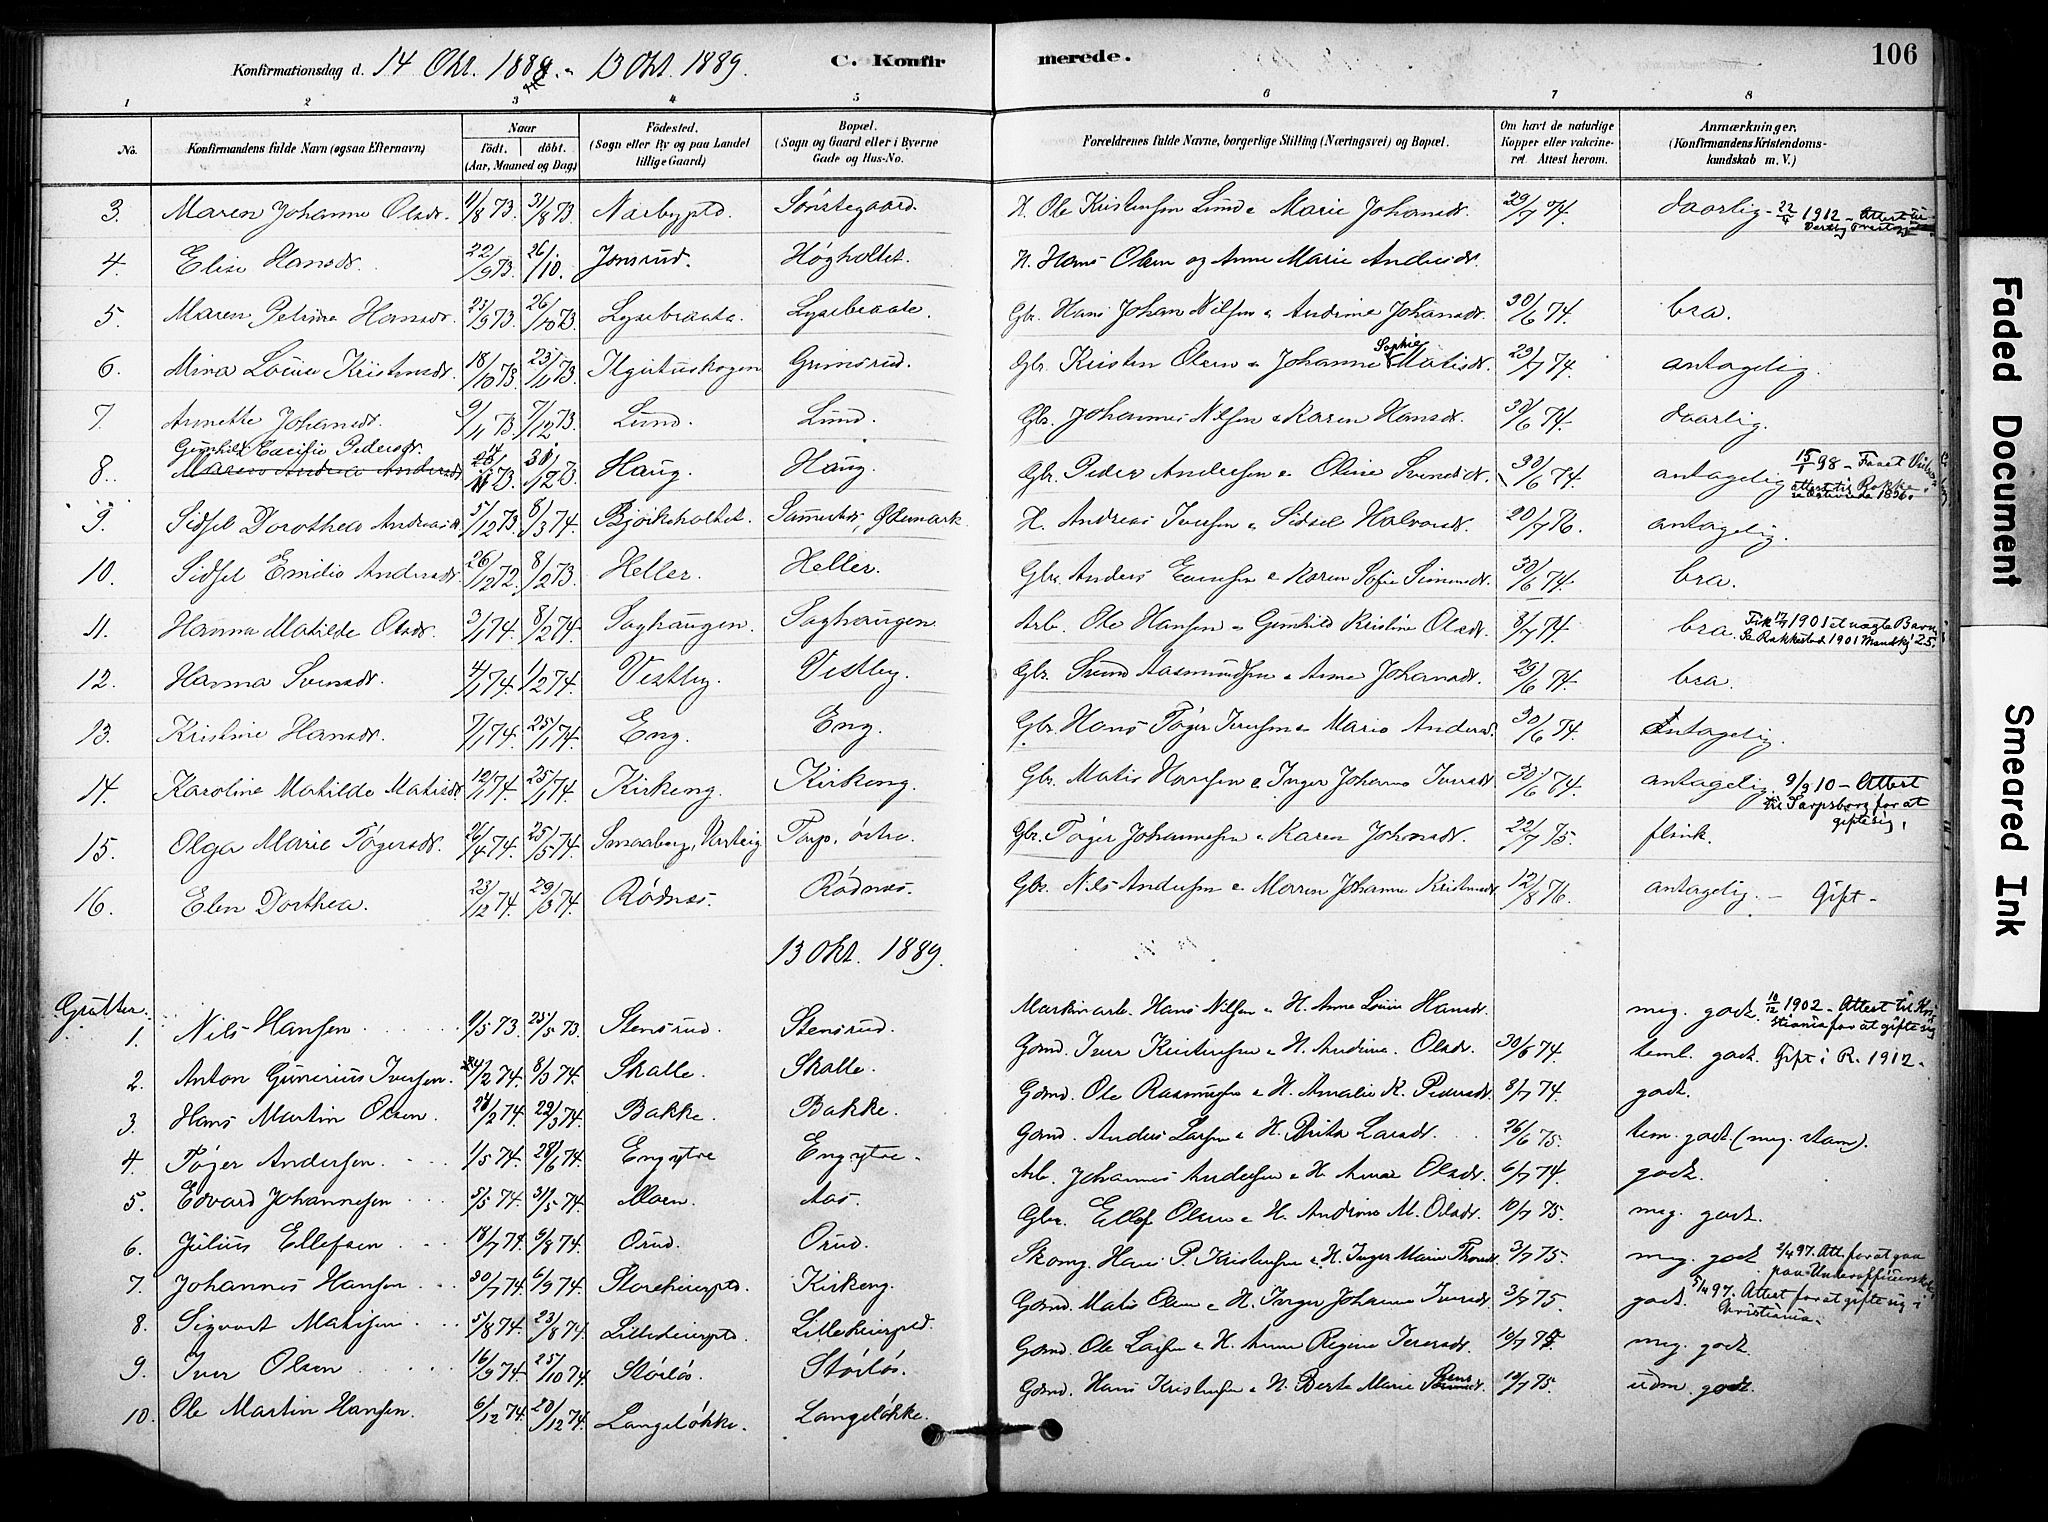 Konfirmationsdag d. 14 Okt. 1888 - 13 Okt. 1889. C. Konfirmerede. 106
1 2 3 4 5 6 7 8
No. Konfirmandens fulde Navn (ogsaa Efternavn) Naar født. døbt. (Aar, Maaned og Dag) Fødested. (Sogn eller By og paa Landet tillige Gaard) Bopæl. (Sogn og Gaard eller i Byerne Gade og Hus-No. Forældrenes fulde Navne, borgerlige Stilling (Næringsvei) og Bopæl. Om havt de naturlige Kopper eller vakcineret. Attest herom. Anmærkninger. (Konfirmandens Kristendomskundskab m. V.)
3. Maren Johanne Olsdr. 11/8 73. 31/8 73. Narbyptd. Sønstegaard. H. Ole Kristensen Lund & Marie Johansdr. 29/7 74. daarlig - 22/4 1912 - Attest
4. Elise Hansdr. 22/9 73. 26/10. Jonsrud. Høgholtet. H. Hans Olsen og Anne Marie Andersdr.
5. Maren Petrine Hansdr. 23/9 73. 26/10 73. Lysebraate. Lysebraate. Gbr. Hans Johan Nilsen & Andrine Johansdr. 30/6 74. bra.
6. Mina Louise Kristensdr. 18/10 73. 23/11 73. Grimsrud. Gbr. Kristen Olsen & Johanne Sophie Matisdr. 29/7 74. antagelig.
7. Annette Johansdr. 9/11 73. 7/12 73. Lund. Lund. Gbr. Johannes Nilsen & Karen Hansdr. 30/6 74. daarlig.
8. Gunhild Pedersdr. Maren Andrea Andersdr. 73. 31/12 73. Haug. Haug. Gbr. Peder Andersen & Oline Svendsdr. 30/6 74. antagelig 15/1 98 - attest til Rakke
9. Sidsel Dorothea Andreasdr. 5/12 73. 8/3 74. Bjørkholtet. Ødemark. H. Andreas Iversen & Sidsel Halvorsdr. 20/7 76. antagelig.
10. Sidsel Emilie Andersdr. 26/12 72. 8/2 73. Heller. Heller. Gbr. Anders Evensen & Karen Sofie Simensdr. 30/6 74. bra.
11. Hanna Matilde Olsdr. 3/1 74. 8/2 74. Saghaugen. Saghaugen. Arb. Ole Hansen & Gunhild Kristine Olsdr. 8/7 74. bra. Fik 17/7 1901 et uægte Barn, Se Rakkestad 1901 Mandkj 25.
12. Hanna Svensdr. 4/1 74. 1/2 74. Vestby. Vestby. Gbr. Svend Aasmundsen & Anne Johansdr. 29/6 74. bra.
13. Kristine Hansdr. 7/1 74. 25/1 74. Eng. Eng. Gbr. Hans Tøger Iversen & Marie Andersd. 30/6 74. Antagelig.
14. Karoline Matilde Matisdr. 12/1 74. 25/1 74. Kirkeng. Kirkeng. Gbr. Matis Hansen & Inger Johanne Iversdr. 30/6 74. antagelig. 9/9 10 - Attest til Sarpsborg for at gifte sig.
15. Olga Marie Tøgersdr. 26/4 74. 25/5 74. Smaaberg, Varteig Torp, østre. Gbr. Tøger Johannesen & Karen Johansdr. 22/7 75. flink.
16. Elen Dorthea. 23/12 74. 29/3 74. Rødnæs. Rødnæs. Gbr. Nils Andersen & Maren Johanne Kristensdr. 12/8 76. antagelig. - Gift -
13 Okt. 1889.
Gutter.
1. Nils Hansen 9/5 73. 25/5 73. Stensrud. Stensrud. Maskinarb. Hans Nilsen & H. Anne Louise Hansdr. meg. godt. 10/12 1902 - Attest til Kristiania for at gifte sig
2. Anton Gunerius Iversen. 24/2 74. 8/3 74. Skalle. Skalle. Gbmd. Iver Kristensen & H. Andrine Olsdr. 30/6 74. teml. godt. Gift i R. 1912.
3. Hans Martin Olsen. 24/2 74. 22/3 74. Bakke. Bakke. Gbmd. Ole Rasmusen & H. Amalie K. Pedersdr. 8/7 74. godt.
4. Tøger Andersen. 1/5 74. 28/6 74. Eng ytre Eng ytre. Gbmd. Anders Larsen & H. Brita Larsdr. 26/6 75. tem. godt. (meg. stam).
5. Edvard Johannesen 5/5 74. 31/5 74. Moen. Aas. Arb. Johannes Andersen & H. Anne Olsdr. 6/7 74. godt.
6. Julius Ellefsen 18/7 74. 9/8 74. Orud. Orud. Gbr. Ellef Olsen & H. Andrine M. Olsdr. 10/7 75. meg. godt.
7. Johannes Hansen 30/7 74. 6/9 74. Storeheierptd. Kirkeng. Skomg. Hans P. Kristensen & H. Inger Marie Thoresdr. 3/7 75. meg. godt 2/4 97. Att. for at gaa paa Underofficersskole
8. Sigvart Matisen 5/8 74. 23/8 74. Lilleheierptd. Lilleheierptd. Gbmd. Matis Olsen & H. Inger Johanne Iversdr. 3/7 75. godt. 5/4 97. Attest for at gifte sig i Christiania.
9. Iver Olsen 16/9 74. 25/10 74. Støiløs. Støiløs. Gbmd. Ole Larsen & H. Anne Regine Iversdr. 10/7 75. meg. godt.
10. Ole Martin Hansen. 6/12 74. 20/12 74. Langeløkke. Langeløkke. Gbmd. Hans Kristensen & H. Berte Marie 10/7 75. udm. godt.
Faded Document
Smeared Ink